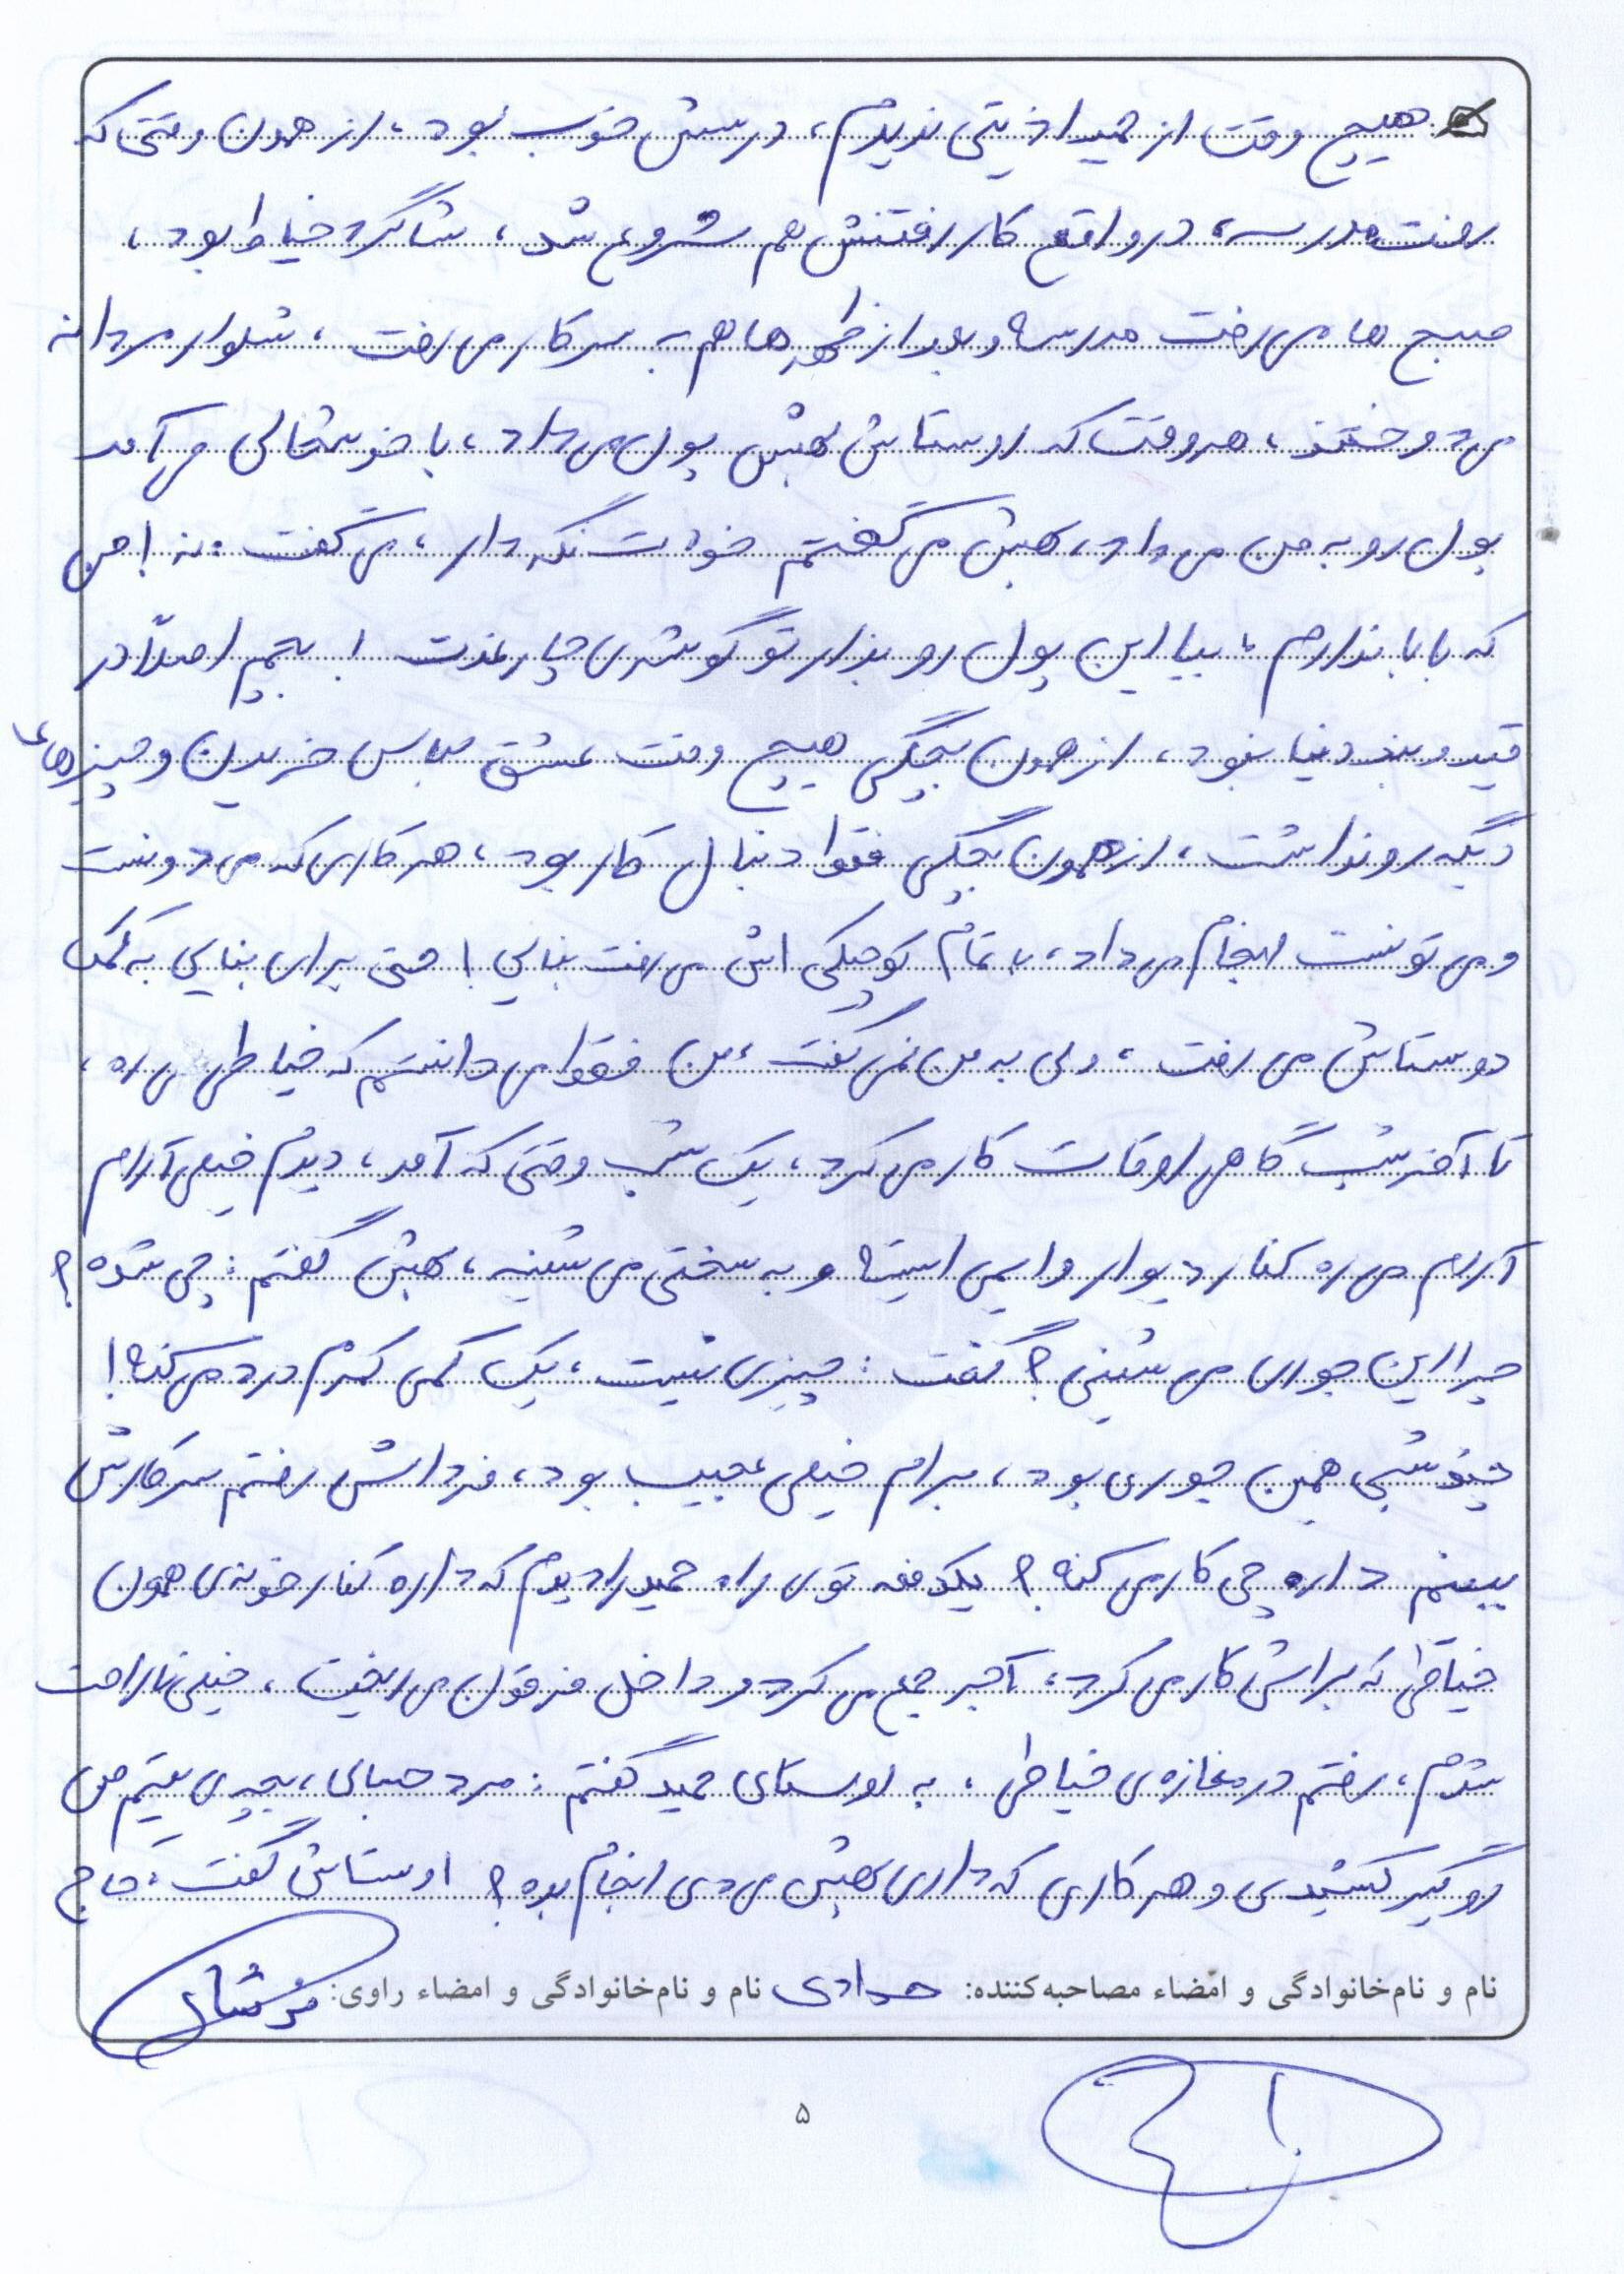 هیچ وقت از حمید اذیتی ندیدم، درسش خوب بود، از همون وقتی که
رفت مدرسه، در واقع کار رفتنش هم شروع شد، شاگرد خیاط بود،
صبح ها می رفت مدرسه و بعد از ظهرها هم به سر کار می رفت، شلوار مردانه
می دوختند، هر وقت که اوستاش بهش پول می داد، با خوشحالی می آمد
پول رو به من می داد، بهش می گفتم خودت نگه دار، می گفت: نه! من
که بابا ندارم، بیا این پول رو بذار تو گوشه ی چارغدت! بچم اصلاً در
قید و بند دنیا نبود، از همون بچگی هیچ وقت عشق لباس خریدن و چیزهای
دیگه رو نداشت، از همون بچگی فقط دنبال کار بود، هر کاری که می دونست
و می تونست انجام می داد، با تمام کوچیکی اش می رفت بنایی! حتی برای بنایی به کمک
دوستاش می رفت، ولی به من نمی گفت، من فقط می دانستم که خیاطی می ره،
تا آخر شب گاهی اوقات کار می کرد، یک شب وقتی که آمد، دیدم خیلی آرام
آرام می ره کنار دیوار وایمی ایسته و به سختی می شینه، بهش گفتم: چی شده؟
چرا این جوری می شینی؟ گفت: چیزی نیست، یک کمی کمرم درد می کنه!
چند شبی همین جوری بود، برام خیلی عجیب بود، فرداش رفتم سر کارش
ببینم داره چی کار می کنه؟ یکدفعه توی راه حمید را دیدم که داره کنار خونه ی همون
خیاطی که براش کار می کرد، آجر جمع می کرد و داخل فرقون می ریخت، خیلی ناراحت
شدم، رفتم در مغازه ی خیاطی، به اوستای حمید گفتم: مرد حسابی، بچه ی یتیم من
رو گیر کشیدی و هر کاری که داری بهش می دی انجام بده؟ اوستاش گفت: حاج
نام و نام‌خانوادگی و امضاء مصاحبه‌کننده: حدادی نام و نام‌خانوادگی و امضاء راوی:
۵